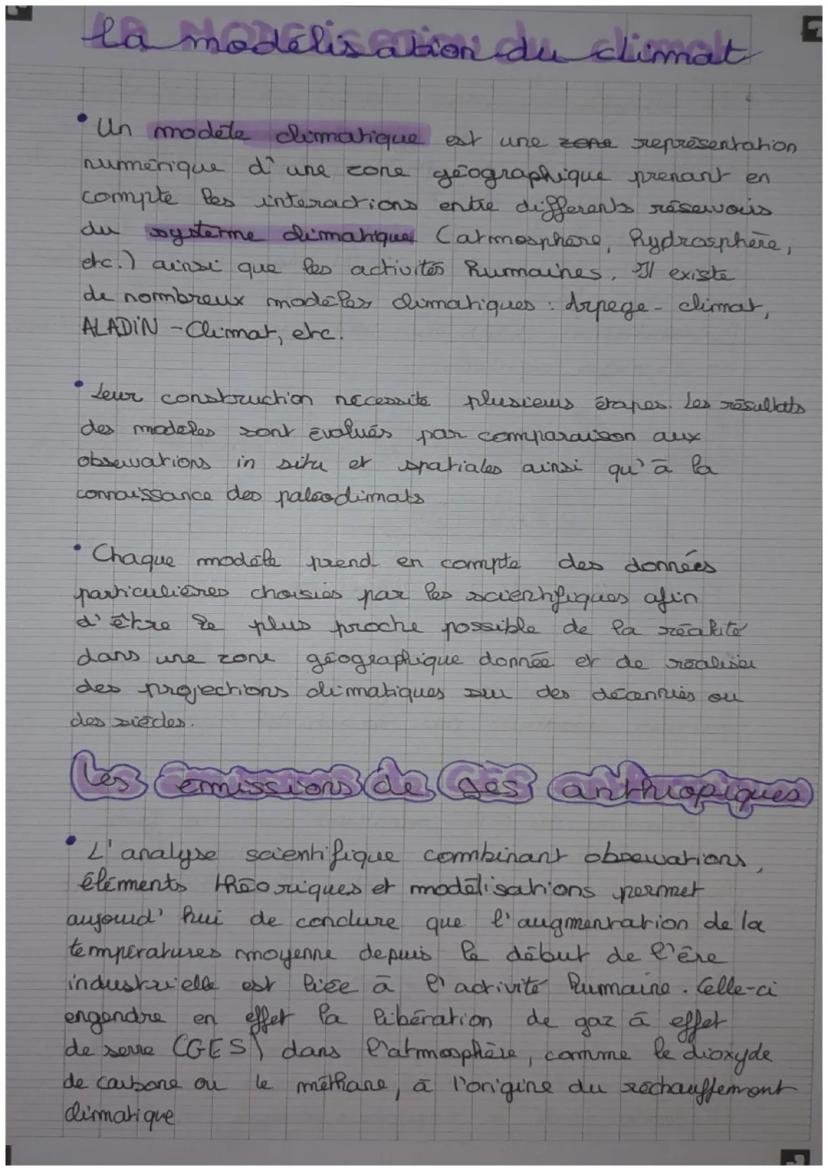 La modélisation du climat
• Un modèle climatique est une zone représentation
numérique d'une zone géographique prenant en
compte les interactions entre différents réservoirs
du système climatique (atmosphère, hydrosphère,
etc.) ainsi que les activités humaines. Il existe
de nombreux modèles climatiques : Arpege - climat,
ALADIN - Climat, etc.
• Leur construction nécessite plusieurs étapes. Les résultats
des modèles sont évalués par comparaison aux
observations in situ et spatiales ainsi qu'à la
connaissance des paléoclimats
• Chaque modèle prend en compte des données
particulières choisies par les scientifiques afin
d'être le plus proche possible de la réalité
dans une zone géographique donnée et de réaliser
des projections climatiques sur des décennies ou
des siècles.
Les émissions de Gès anthropiques
• L'analyse scientifique combinant observations,
éléments théoriques et modélisations permet
aujourd'hui de conclure que l'augmentation de la
températures moyenne depuis le début de l'ère
industrielle est liée à l'activité humaine. Celle-ci
engendre en effet la libération de gaz à effet
de serre (GES) dans l'atmosphère, comme le dioxyde
de carbone ou le méthane, à l'origine du réchauffement
climatique